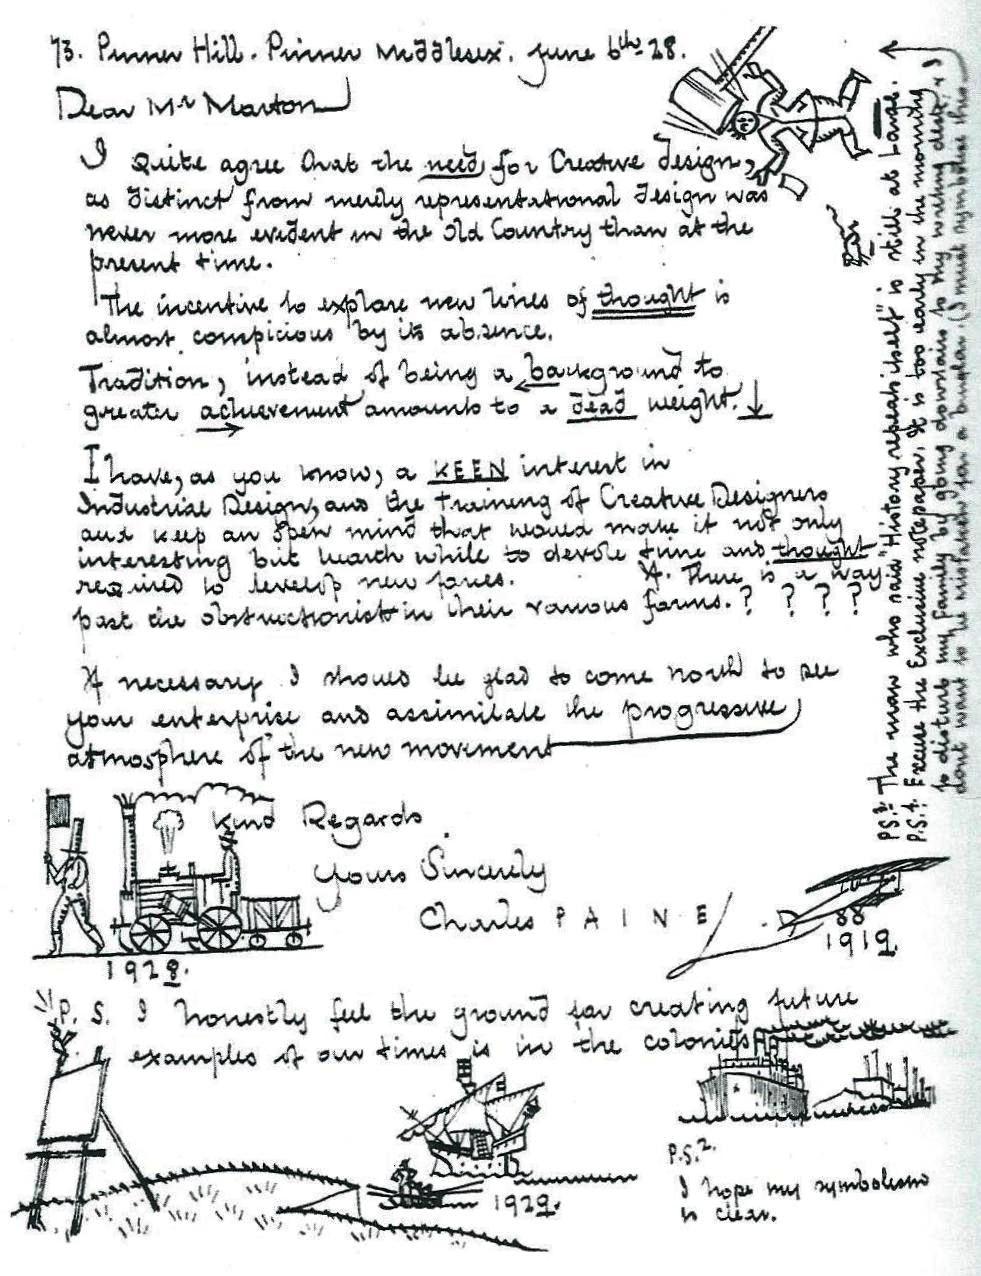 73. Pinner Hill. Pinner Middlesex. June 6th-28.
Dear Mr Marton
I quite agree that the need for Creative design,
as distinct from merely representational design was
never more evident in the old Country than at the
present time.
The incentive to explore new lines of thought is
almost conspicious by its absence.
Tradition, instead of being a background to
greater achievement amounts to a dead weight.
I have, as you know, a KEEN interest in
Industrial Design, and the training of Creative Designers
and keep an open mind that would make it not only
interesting but worth while to devote time and thought
required to develop new forms. There is a way
past the obstructionist in their various forms. ? ? ? ?
If necessary I should be glad to come north to see
your enterprise and assimilate the progressive
atmosphere of the new movement
Kind Regards
Yours Sincerely
Charles PAINE
1928.
88
1919.
P.S. I honestly feel the ground for creating future
examples of our times is in the colonies
1929.
P.S.2.
I hope my symbolism
is clear.
P.S.3. The man who said "History repeats itself" is still at large.
P.S.4. Excuse the Exclusive notepaper. It is too early in the morning
to disturb my family by going downstairs to my writing desk, & I
dont want to be mistaken for a burglar. (I must symbolise this